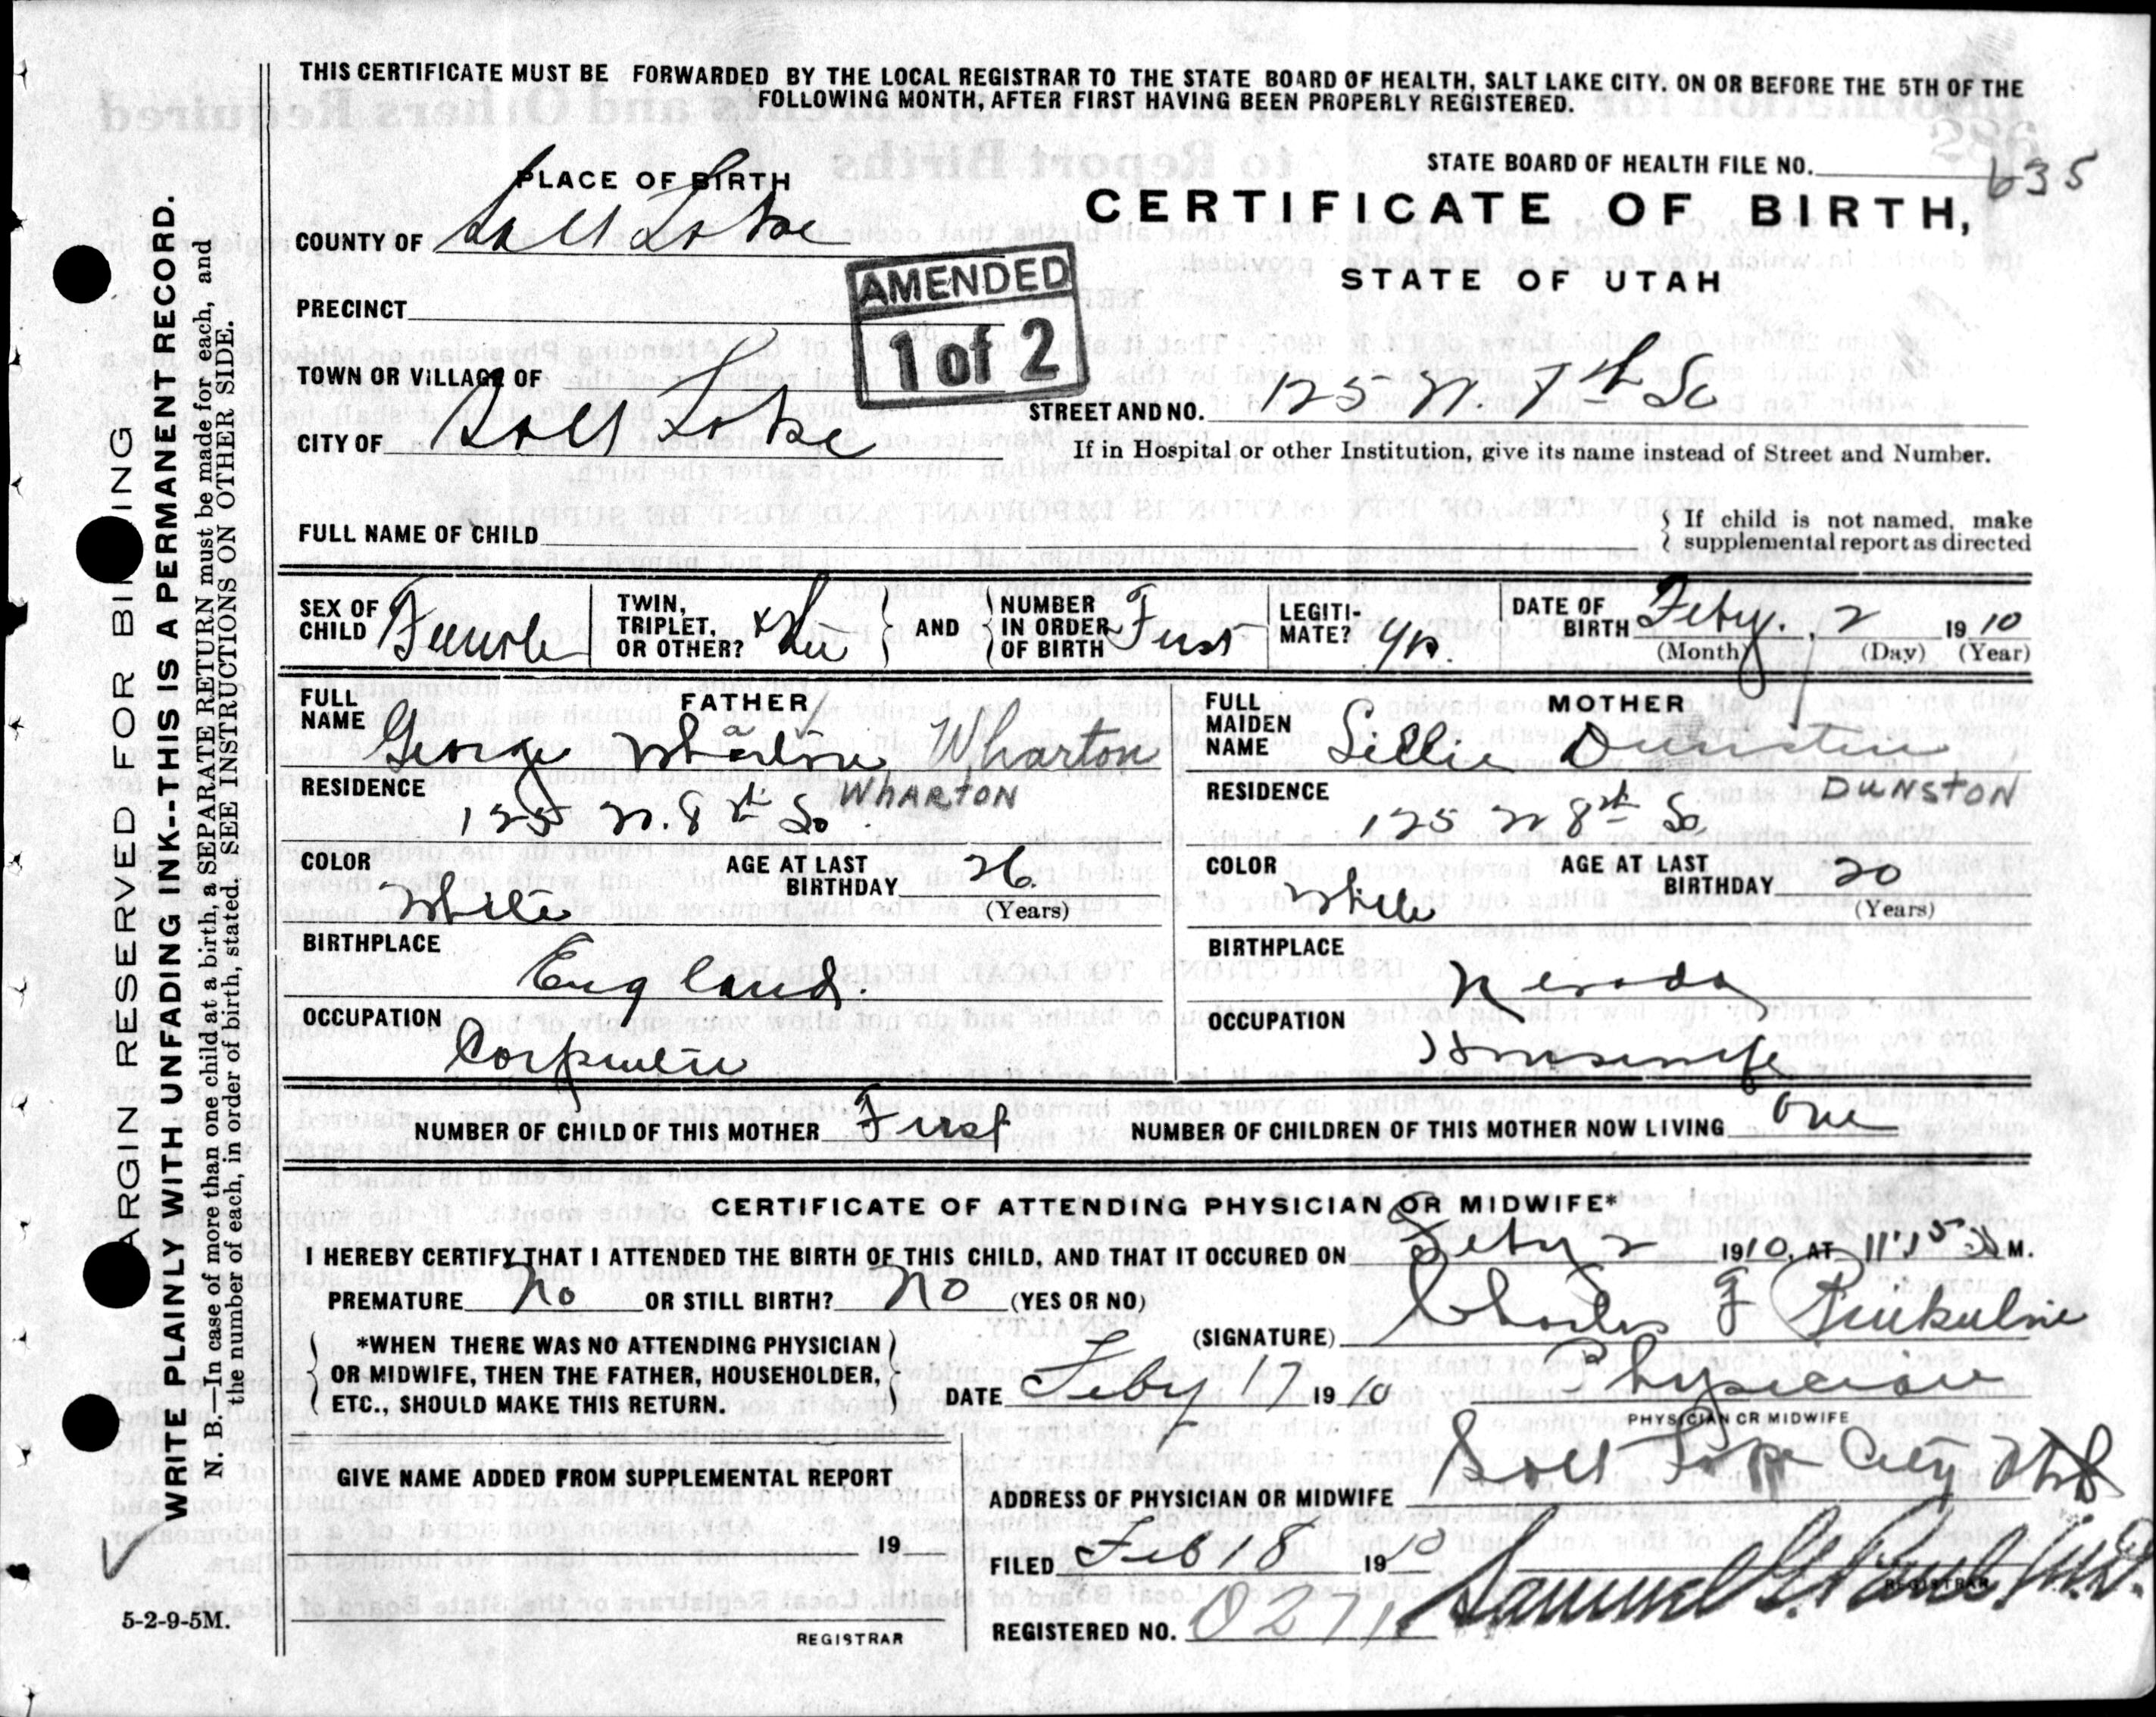 THIS CERTIFICATE MUST BE FORWARDED BY THE LOCAL REGISTRAR TO THE STATE BOARD OF HEALTH, SALT LAKE CITY. ON OR BEFORE THE 5TH OF THE
FOLLOWING MONTH, AFTER FIRST HAVING BEEN PROPERLY REGISTERED.
STATE BOARD OF HEALTH FILE NO. 635
PLACE OF BIRTH
CERTIFICATE OF BIRTH,
COUNTY OF Salt Lake
STATE OF UTAH
AMENDED
1 of 2
PRECINCT
TOWN OR VILLAGE OF
STREET AND NO. 125 N. 7th So
CITY OF Salt Lake
If in Hospital or other Institution, give its name instead of Street and Number.
FULL NAME OF CHILD
If child is not named, make
supplemental report as directed
SEX OF CHILD Female
TWIN, TRIPLET, OR OTHER?
AND
NUMBER IN ORDER OF BIRTH First
LEGITI-MATE?
DATE OF BIRTH Feby. 2 1910
(Month) (Day) (Year)
FATHER
FULL NAME George Wharton Wharton
WHARTON
RESIDENCE 125 N. 8th So
COLOR White
AGE AT LAST BIRTHDAY 26
(Years)
BIRTHPLACE England.
OCCUPATION Carpenter
MOTHER
FULL MAIDEN NAME Lillie Dunston
DUNSTON
RESIDENCE 125 N 8th So
COLOR White
AGE AT LAST BIRTHDAY 20
(Years)
BIRTHPLACE Nevada
OCCUPATION Housewife
NUMBER OF CHILD OF THIS MOTHER First
NUMBER OF CHILDREN OF THIS MOTHER NOW LIVING One
CERTIFICATE OF ATTENDING PHYSICIAN OR MIDWIFE*
I HEREBY CERTIFY THAT I ATTENDED THE BIRTH OF THIS CHILD, AND THAT IT OCCURED ON Feby 2 1910, AT 11:15 M.
PREMATURE No OR STILL BIRTH? No (YES OR NO)
*WHEN THERE WAS NO ATTENDING PHYSICIAN
OR MIDWIFE, THEN THE FATHER, HOUSEHOLDER,
ETC., SHOULD MAKE THIS RETURN.
(SIGNATURE) Charles F
DATE Feby 17 1910
Physician
PHYSICIAN OR MIDWIFE
GIVE NAME ADDED FROM SUPPLEMENTAL REPORT
ADDRESS OF PHYSICIAN OR MIDWIFE Salt Lake City Utah
19
FILED Feb 18 1910
Samuel G. Paul M.D.
REGISTRAR
REGISTERED NO. 0271
REGISTRAR
5-2-9-5M.
ARGIN RESERVED FOR BI ING
WRITE PLAINLY WITH UNFADING INK--THIS IS A PERMANENT RECORD.
N. B.—In case of more than one child at a birth, a SEPARATE RETURN must be made for each, and
the number of each, in order of birth, stated. SEE INSTRUCTIONS ON OTHER SIDE.